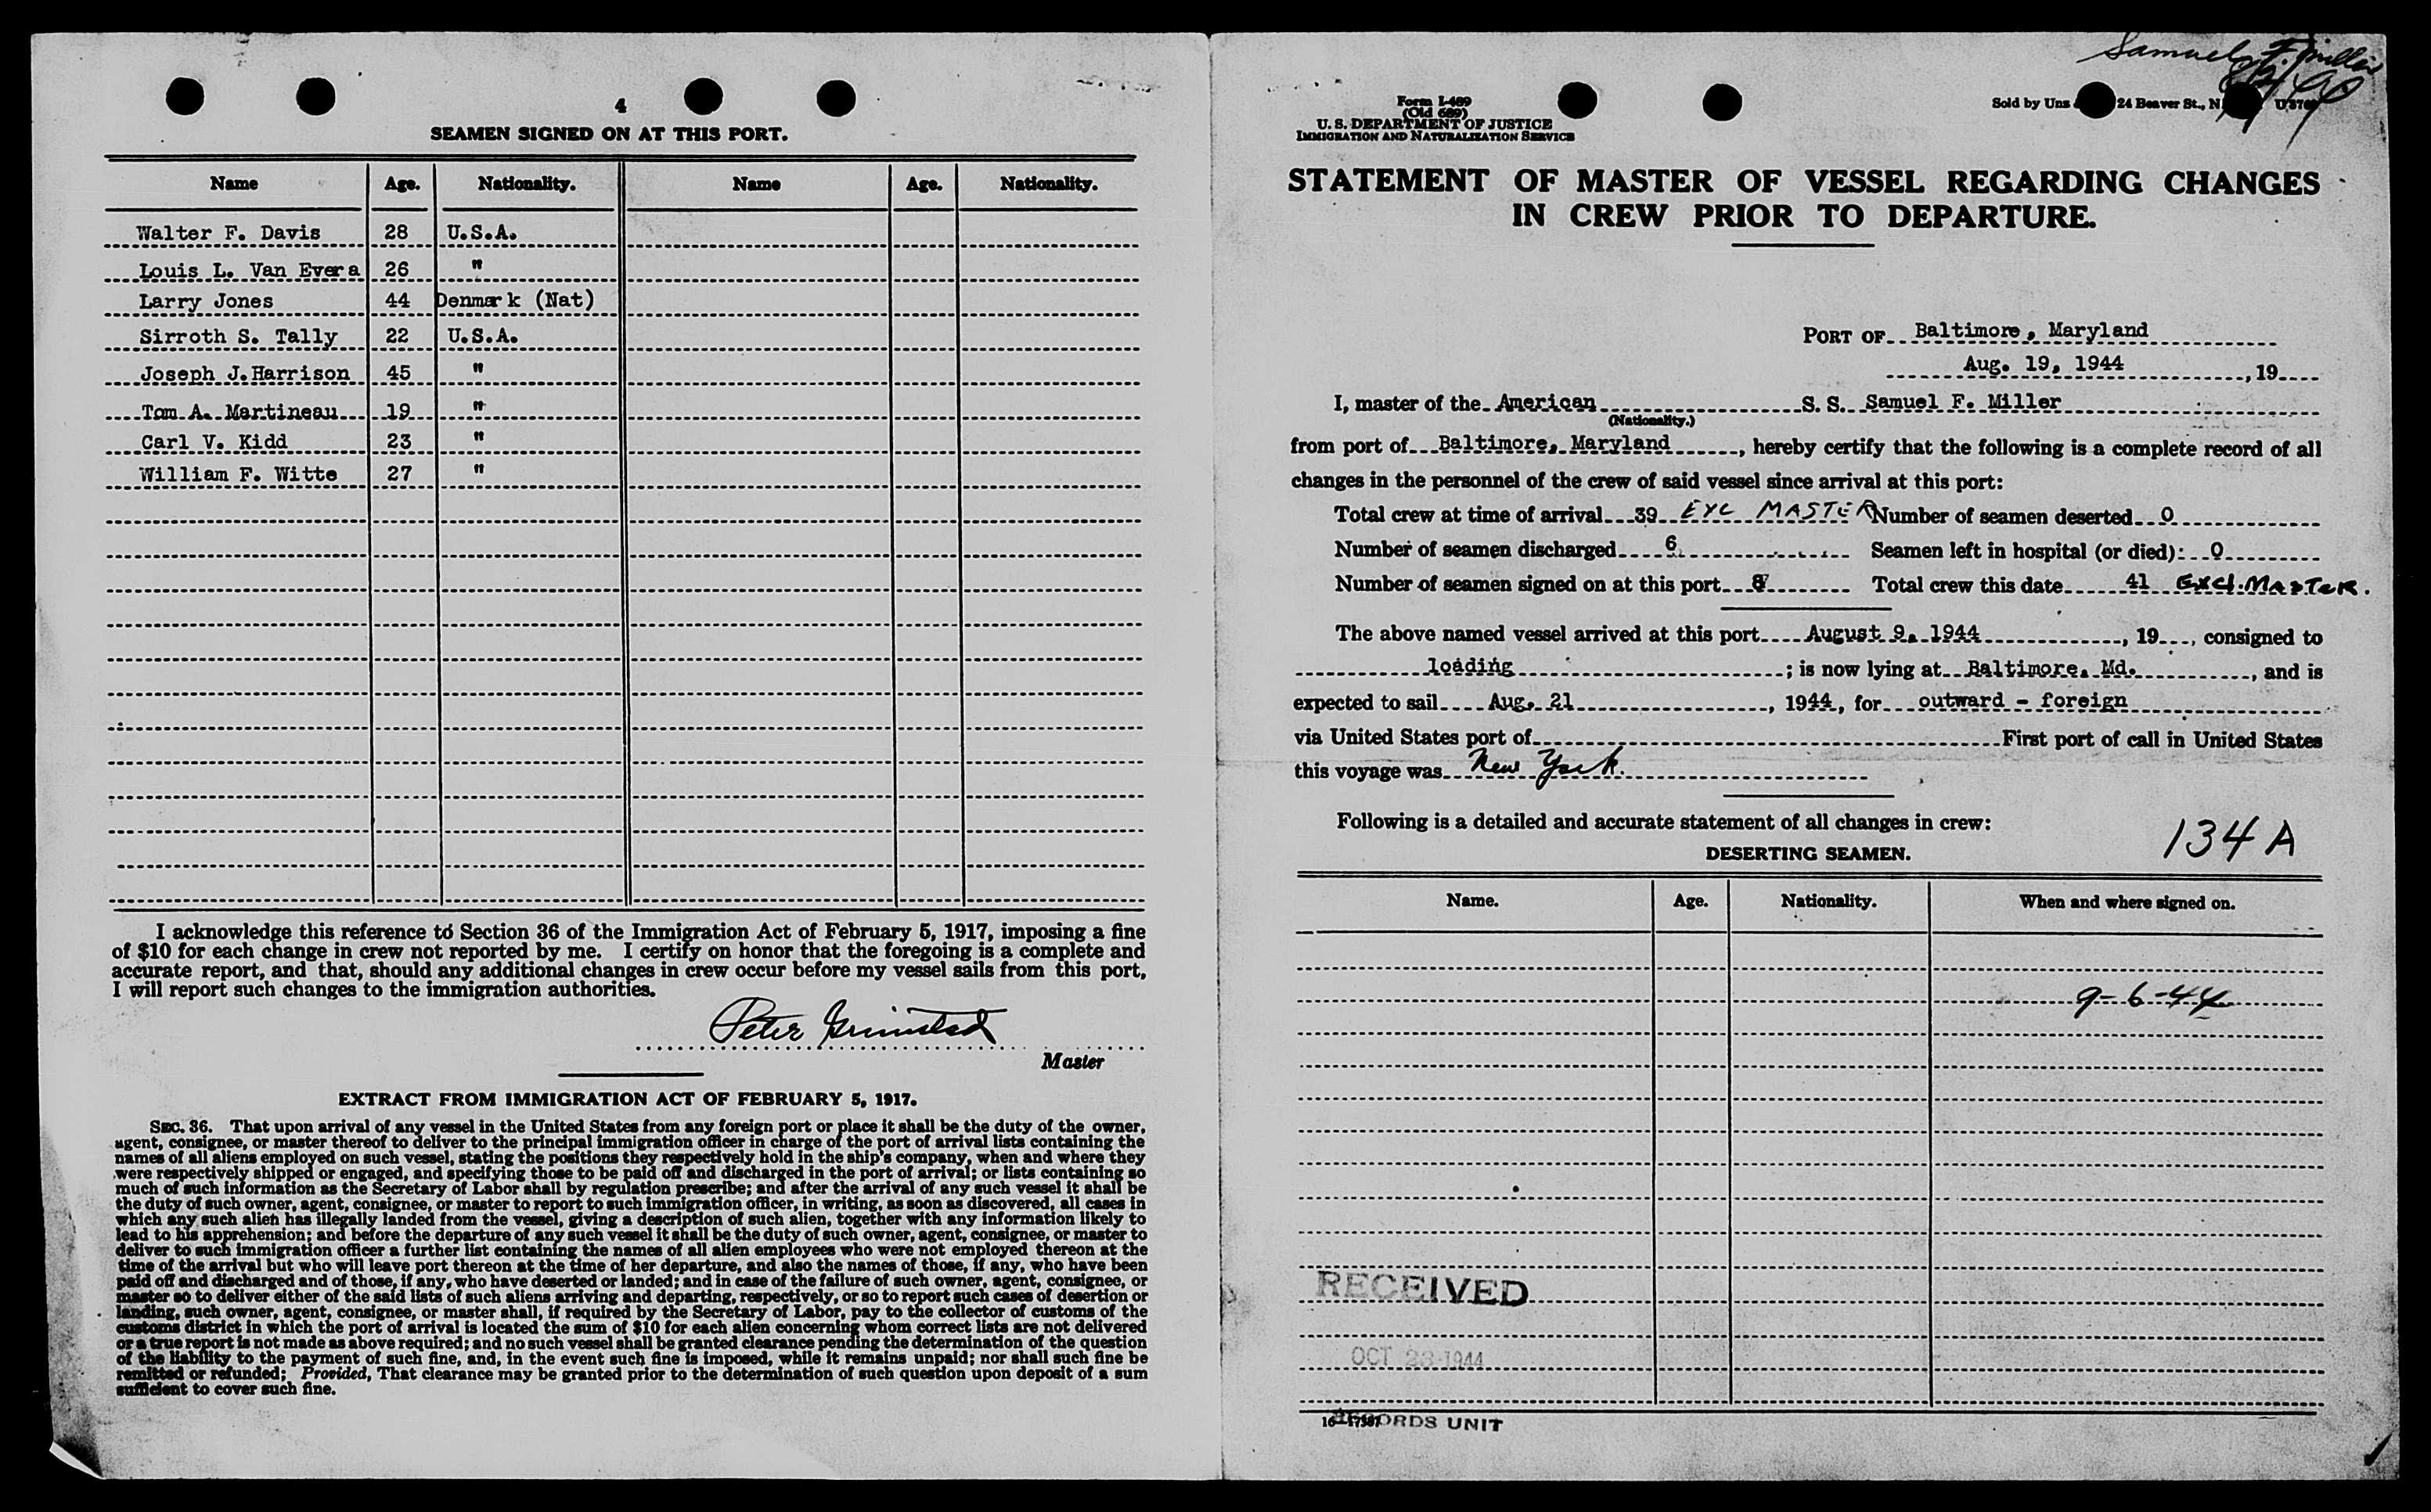 4
SEAMEN SIGNED ON AT THIS PORT.
Name Age. Nationality. Name Age. Nationality.
Walter F. Davis 28 U.S.A.
Louis L. Van Evera 26 "
Larry Jones 44 Denmark (Nat)
Sirroth S. Tally 22 U.S.A.
Joseph J. Harrison 45 "
Tom A. Martineau 19 "
Carl V. Kidd 23 "
William F. Witte 27 "
I acknowledge this reference to Section 36 of the Immigration Act of February 5, 1917, imposing a fine
of $10 for each change in crew not reported by me. I certify on honor that the foregoing is a complete and
accurate report, and that, should any additional changes in crew occur before my vessel sails from this port,
I will report such changes to the immigration authorities.
Peter Grimstad
Master
EXTRACT FROM IMMIGRATION ACT OF FEBRUARY 5, 1917.
SEC. 36. That upon arrival of any vessel in the United States from any foreign port or place it shall be the duty of the owner,
agent, consignee, or master thereof to deliver to the principal immigration officer in charge of the port of arrival lists containing the
names of all aliens employed on such vessel, stating the positions they respectively hold in the ship's company, when and where they
were respectively shipped or engaged, and specifying those to be paid off and discharged in the port of arrival; or lists containing so
much of such information as the Secretary of Labor shall by regulation prescribe; and after the arrival of any such vessel it shall be
the duty of such owner, agent, consignee, or master to report to such immigration officer, in writing, as soon as discovered, all cases in
which any such alien has illegally landed from the vessel, giving a description of such alien, together with any information likely to
lead to his apprehension; and before the departure of any such vessel it shall be the duty of such owner, agent, consignee, or master to
deliver to such immigration officer a further list containing the names of all alien employees who were not employed thereon at the
time of the arrival but who will leave port thereon at the time of her departure, and also the names of those, if any, who have been
paid off and discharged and of those, if any, who have deserted or landed; and in case of the failure of such owner, agent, consignee, or
master so to deliver either of the said lists of such aliens arriving and departing, respectively, or so to report such cases of desertion or
landing, such owner, agent, consignee, or master shall, if required by the Secretary of Labor, pay to the collector of customs of the
customs district in which the port of arrival is located the sum of $10 for each alien concerning whom correct lists are not delivered
or a true report is not made as above required; and no such vessel shall be granted clearance pending the determination of the question
of the liability to the payment of such fine, and, in the event such fine is imposed, while it remains unpaid; nor shall such fine be
remitted or refunded; Provided, That clearance may be granted prior to the determination of such question upon deposit of a sum
sufficient to cover such fine.
Samuel F. Miller
Form I-489
(Old 689)
U. S. DEPARTMENT OF JUSTICE
IMMIGRATION AND NATURALIZATION SERVICE
Sold by Unz 24 Beaver St., N
STATEMENT OF MASTER OF VESSEL REGARDING CHANGES
IN CREW PRIOR TO DEPARTURE.
PORT OF Baltimore, Maryland
Aug. 19, 1944, 19
I, master of the American S. S. Samuel F. Miller
(Nationality.)
from port of Baltimore, Maryland, hereby certify that the following is a complete record of all
changes in the personnel of the crew of said vessel since arrival at this port:
Total crew at time of arrival 39 EXC MASTER Number of seamen deserted 0
Number of seamen discharged 6 Seamen left in hospital (or died): 0
Number of seamen signed on at this port 8 Total crew this date 41 Excl. MASTER.
The above named vessel arrived at this port August 9, 1944, 19, consigned to
loading; is now lying at Baltimore, Md., and is
expected to sail Aug. 21, 1944, for outward - foreign
via United States port of First port of call in United States
this voyage was New York.
Following is a detailed and accurate statement of all changes in crew:
134 A
DESERTING SEAMEN.
Name. Age. Nationality. When and where signed on.
9-6-44
RECEIVED
OCT 23 1944
RECORDS UNIT